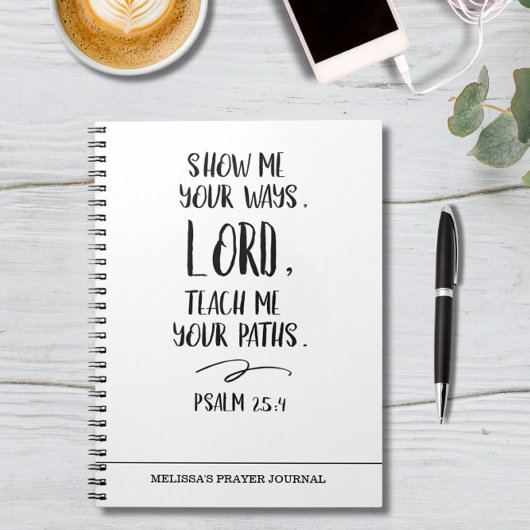 SHOW ME
YOUR WAYS,
LORD,
TEACH ME
YOUR PATHS.
PSALM 25:4
MELISSA'S PRAYER JOURNAL